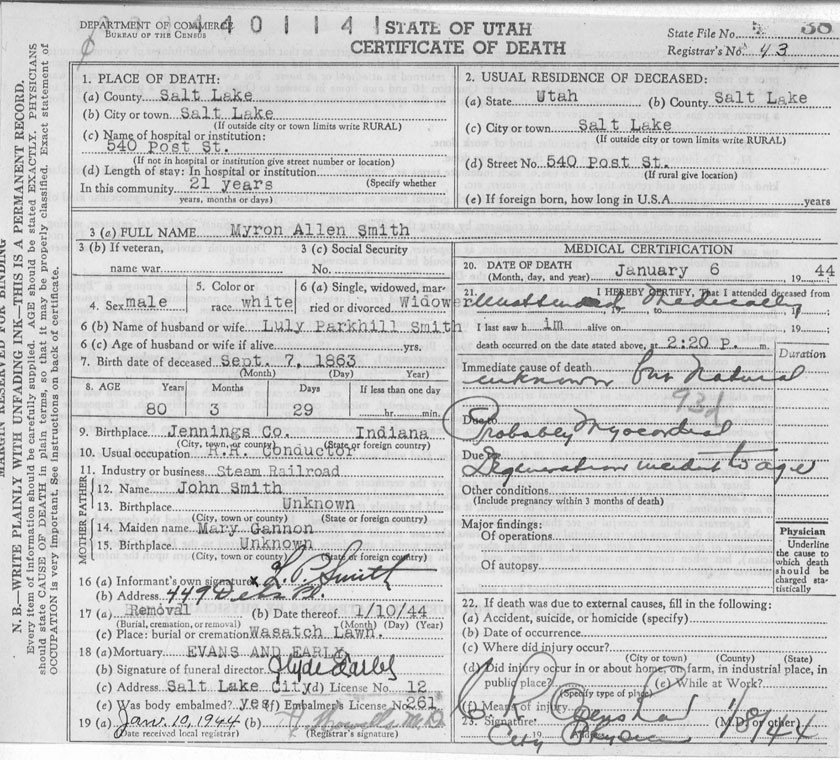 DEPARTMENT OF COMMERCE
BUREAU OF THE CENSUS
4 0 1 1 4 1
STATE OF UTAH
CERTIFICATE OF DEATH
State File No. 38
Registrar's No. 43
MARGIN RESERVED FOR BINDING
N. B.—WRITE PLAINLY WITH UNFADING INK—THIS IS A PERMANENT RECORD.
Every item of information should be carefully supplied. AGE should be stated EXACTLY. PHYSICIANS
should state CAUSE OF DEATH in plain terms, so that it may be properly classified. Exact statement of
OCCUPATION is very important. See instructions on back of certificate.
1. PLACE OF DEATH:
(a) County Salt Lake
(b) City or town Salt Lake
(If outside city or town limits write RURAL)
(c) Name of hospital or institution:
540 Post St.
(If not in hospital or institution give street number or location)
(d) Length of stay: In hospital or institution
(Specify whether
In this community 21 years
years, months or days)
2. USUAL RESIDENCE OF DECEASED:
(a) State Utah (b) County Salt Lake
(c) City or town Salt Lake
(If outside city or town limits write RURAL)
(d) Street No. 540 Post St.
(If rural give location)
(e) If foreign born, how long in U.S.A. years
3 (a) FULL NAME Myron Allen Smith
3 (b) If veteran,
name war
3 (c) Social Security
No.
4. Sex male
5. Color or
race white
6 (a) Single, widowed, mar-
ried or divorced Widower
6 (b) Name of husband or wife Luly Parkhill Smith
6 (c) Age of husband or wife if alive yrs.
7. Birth date of deceased Sept. 7, 1863
(Month) (Day) Year)
8. AGE Years Months Days If less than one day
80 3 29 hr. min.
9. Birthplace Jennings Co. Indiana
(City, town, or county) (State or foreign country)
10. Usual occupation R.R. Conductor
11. Industry or business Steam Railroad
FATHER
12. Name John Smith
13. Birthplace Unknown
(City, town or county) (State or foreign country)
MOTHER
14. Maiden name Mary Gannon
15. Birthplace Unknown
(City, town or county) (State or foreign country)
16 (a) Informant's own signature x Smith
(b) Address 449
17 (a) Removal (b) Date thereof 1/10/44
(Burial, cremation, or removal) (Month) (Day) (Year)
(c) Place: burial or cremation Wasatch Lawn.
18 (a) Mortuary EVANS AND EARLY
(b) Signature of funeral director
(c) Address Salt Lake City (d) License No. 12
(e) Was body embalmed? yes (f) Embalmer's License No. 261
19 (a) Jan. 10, 1944 (b) M.D.
Date received local registrar) (Registrar's signature)
MEDICAL CERTIFICATION
20. DATE OF DEATH January 6 19 44
(Month, day, and year)
21. I HEREBY CERTIFY, That I attended deceased from
Unattended Medically
19 to 19
I last saw h im alive on 19
death occurred on the date stated above, at 2:20 P. m.
Duration
Immediate cause of death
unknown but Natural
93d
Due to
Probably Myocardial
Due to
Degeneration incident to age
Other conditions
(Include pregnancy within 3 months of death)
Major findings:
Of operations
Of autopsy
Physician
Underline
the cause to
which death
should be
charged sta-
tistically
22. If death was due to external causes, fill in the following:
(a) Accident, suicide, or homicide (specify)
(b) Date of occurrence
(c) Where did injury occur?
(City or town) (County) (State)
(d) Did injury occur in or about home, on farm, in industrial place, in
public place? (e) While at Work?
(Specify type of place)
(f) Means of injury
23. Signature (M.D. or other)
City 1/8/44
19